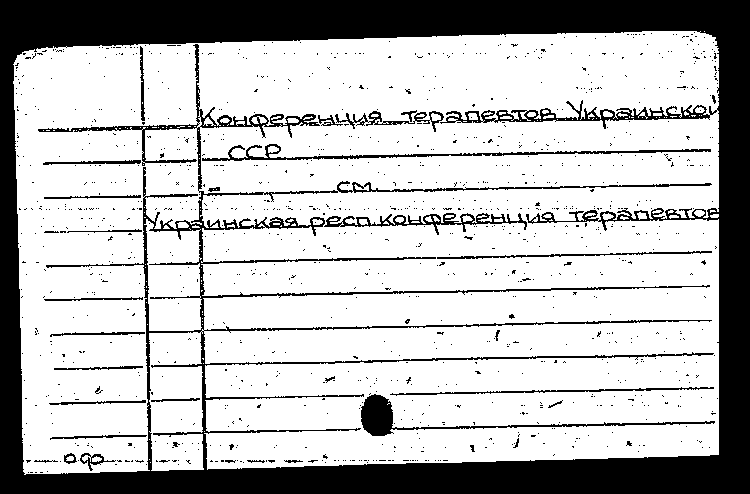 Конференция терапевтов Украинской
ССР
см.
Украинская респ. конференция терапевтов